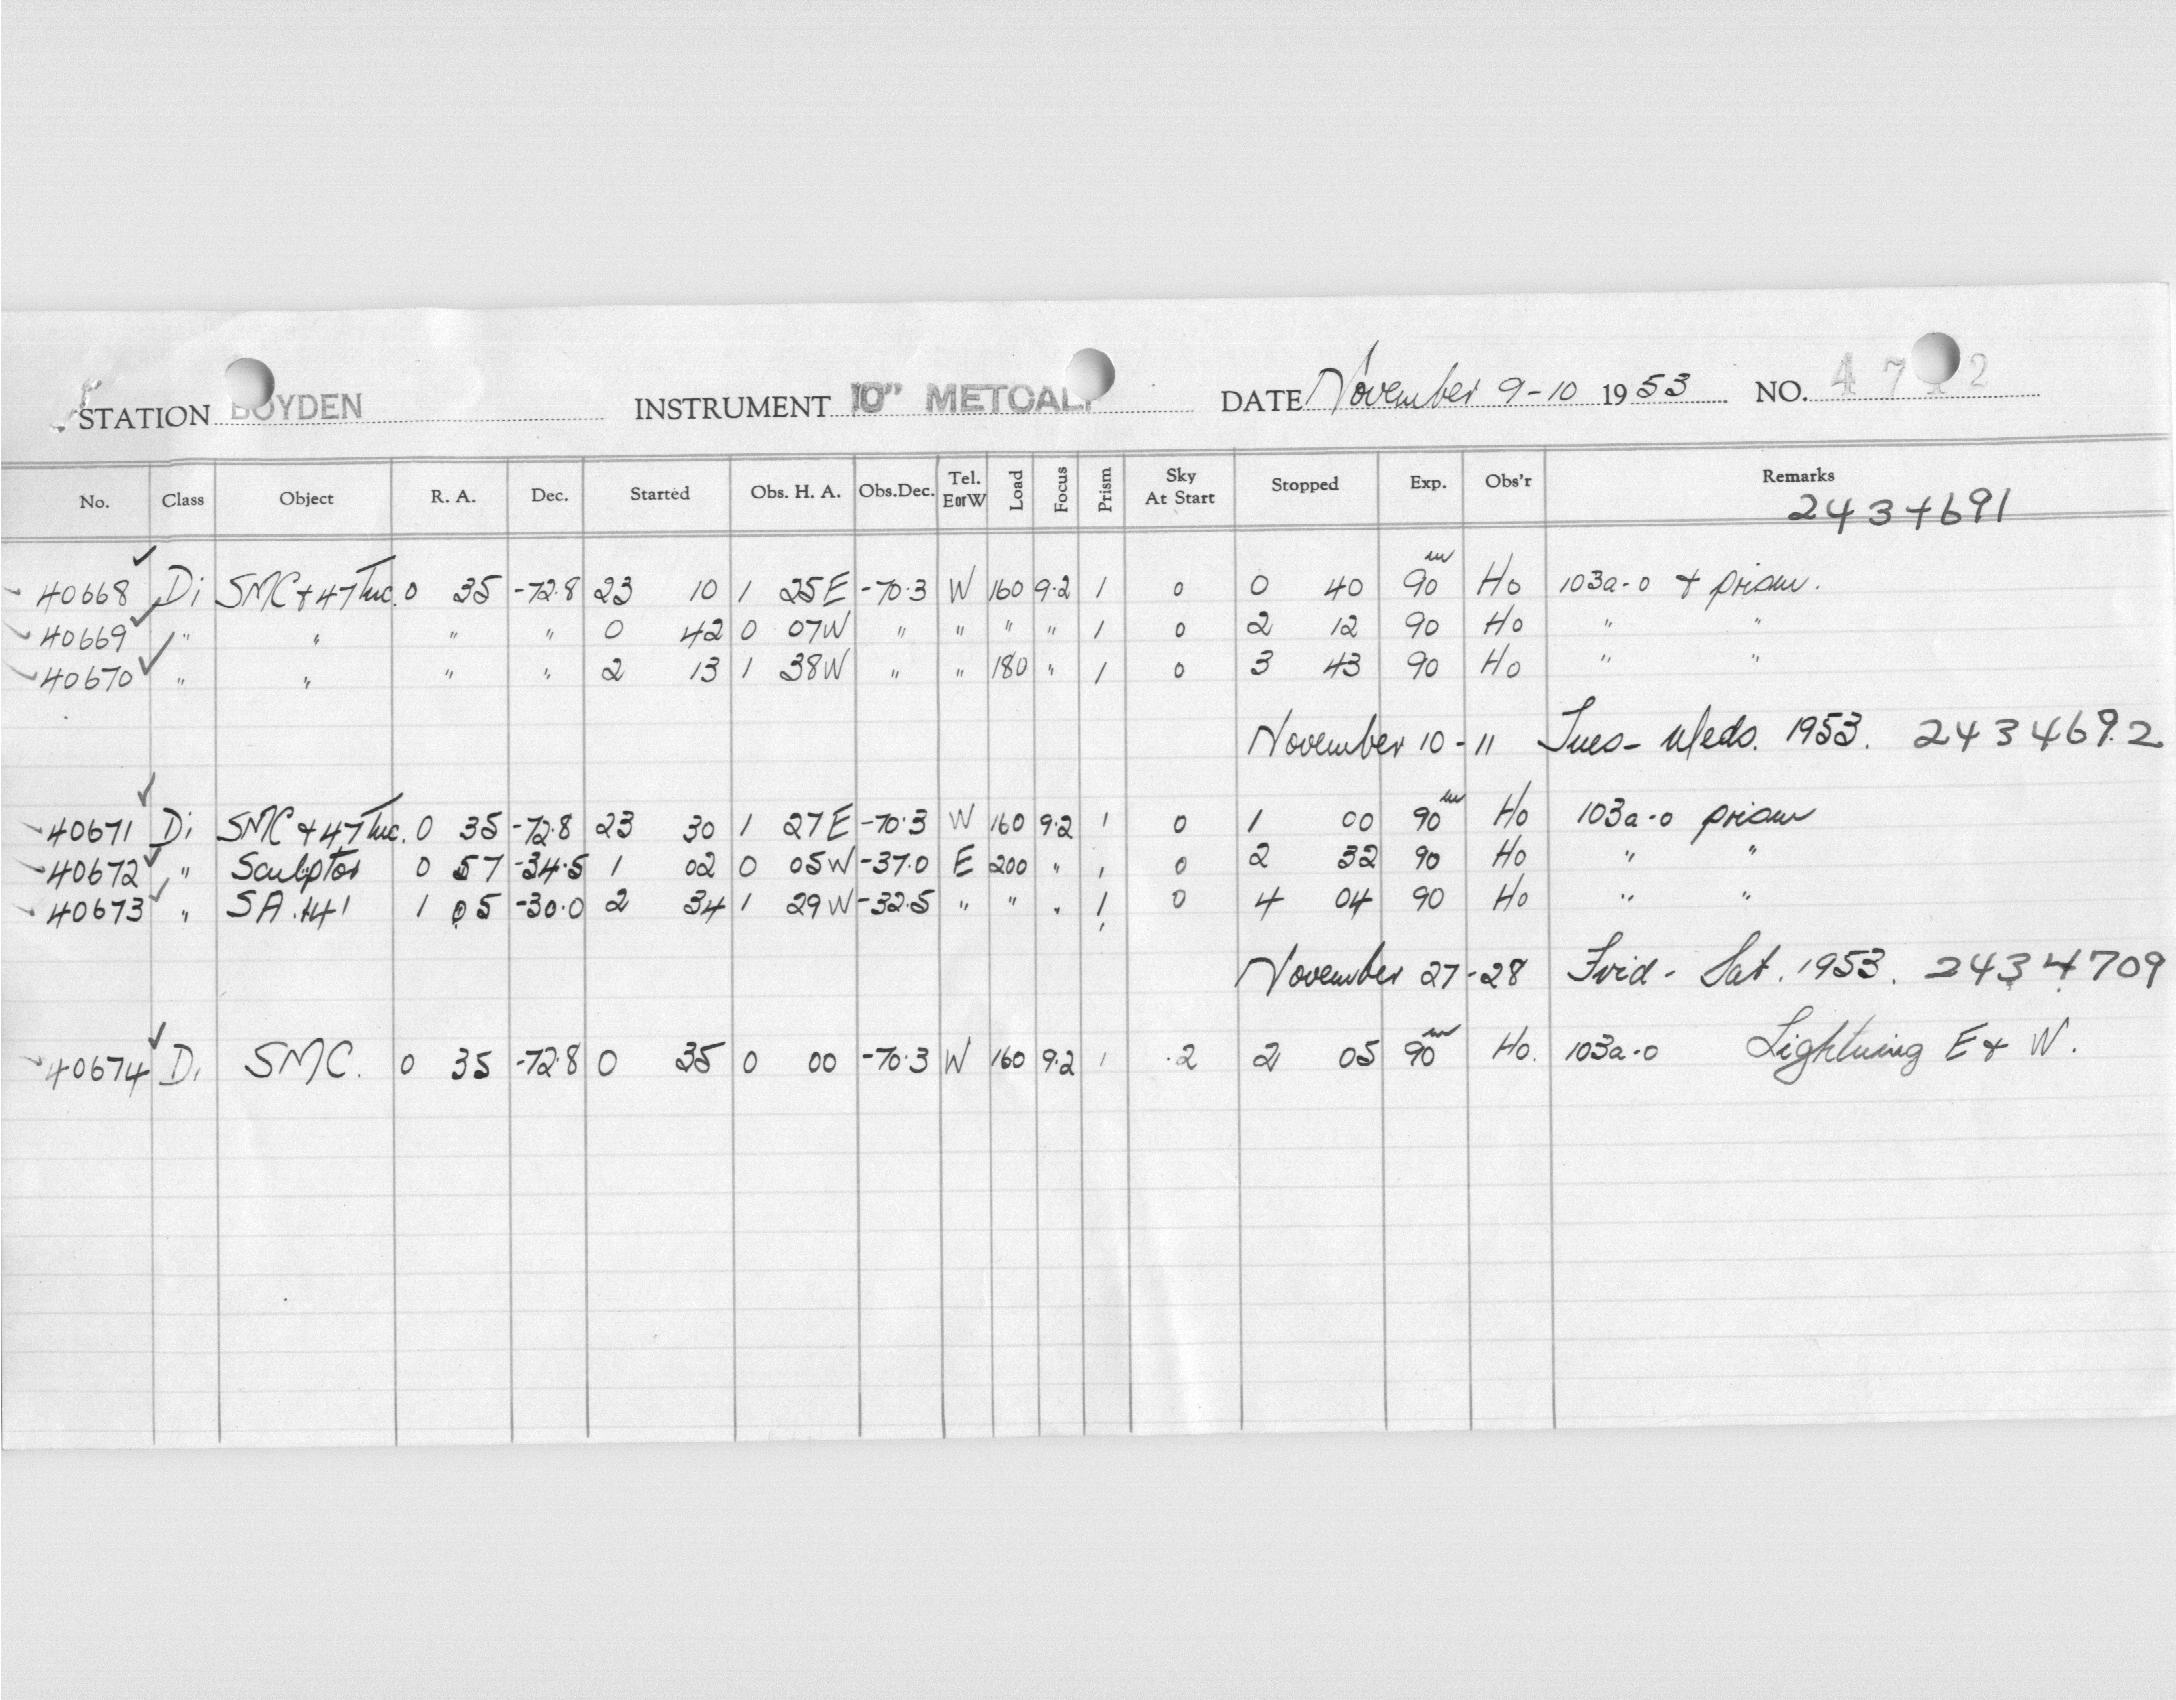 STATION BOYDEN INSTRUMENT 10" METCALF DATE November 9-10 1953 NO. 47 2
No. Class Object R. A. Dec. Started Obs. H. A. Obs.Dec. Tel. E or W Load Focus Prism Sky At Start Stopped Exp. Obs'r Remarks
2434691
40668 Di SMC + 47 Tuc. 0 35 -72.8 23 10 1 25E -70.3 W 160 9.2 1 0 0 40 90m Ho 103a-0 + prism.
40669 " " " " 0 42 0 07W " " " " 1 0 2 12 90 Ho " "
40670 " " " " 2 13 1 38W " " 180 " 1 0 3 43 90 Ho " "
November 10-11 Tues- Weds. 1953. 2434692
40671 Di SMC + 47 Tuc. 0 35 -72.8 23 30 1 27E -70.3 W 160 9.2 1 0 1 00 90m Ho 103a-0 prism
40672 " Sculptor 0 57 -34.5 1 02 0 05W -37.0 E 200 " 1 0 2 32 90 Ho " "
40673 " SA.141 1 05 -30.0 2 34 1 29W -32.5 " " " 1 0 4 04 90 Ho " "
November 27-28 Frid- Sat. 1953. 2434709
40674 Di SMC. 0 35 -72.8 0 35 0 00 -70.3 W 160 9.2 1 .2 2 05 90m Ho. 103a-0 Lightning E + W.